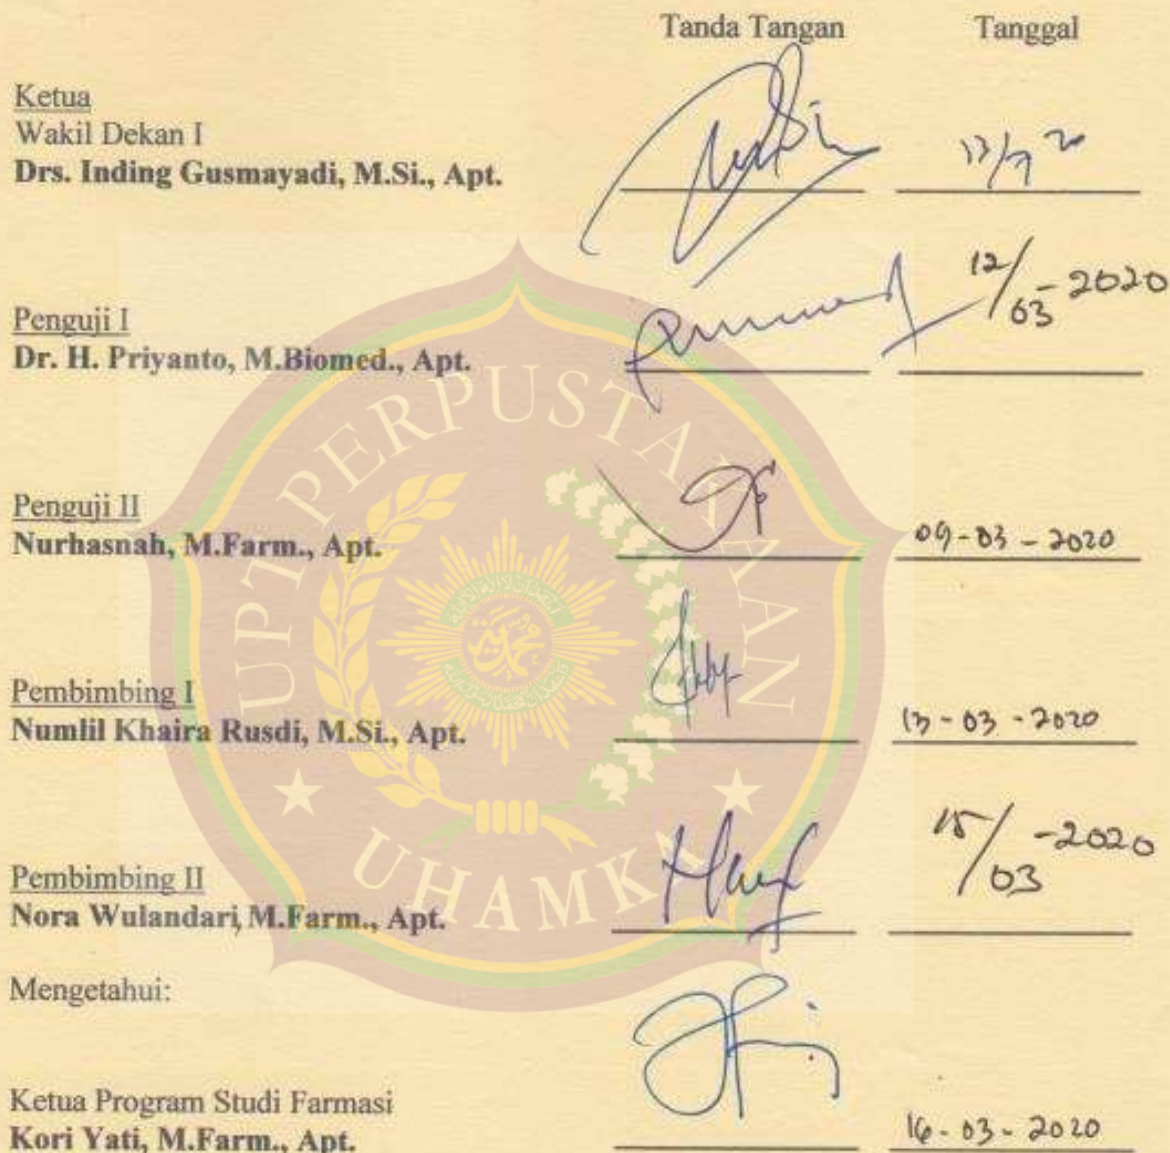 Tanda Tangan Tanggal
Ketua
Wakil Dekan I
Drs. Inding Gusmayadi, M.Si., Apt.
Penguji I
12/03-2020
Dr. H. Priyanto, M.Biomed., Apt.
Penguji II
Nurhasnah, M.Farm., Apt. 09-03-2020
Pembimbing I
Numlil Khaira Rusdi, M.Si., Apt. 13-03-2020
Pembimbing II
15/03-2020
Nora Wulandari, M.Farm., Apt.
Mengetahui:
Ketua Program Studi Farmasi
Kori Yati, M.Farm., Apt. 16-03-2020
UPT PERPUSTAKAAN
UHAMKA